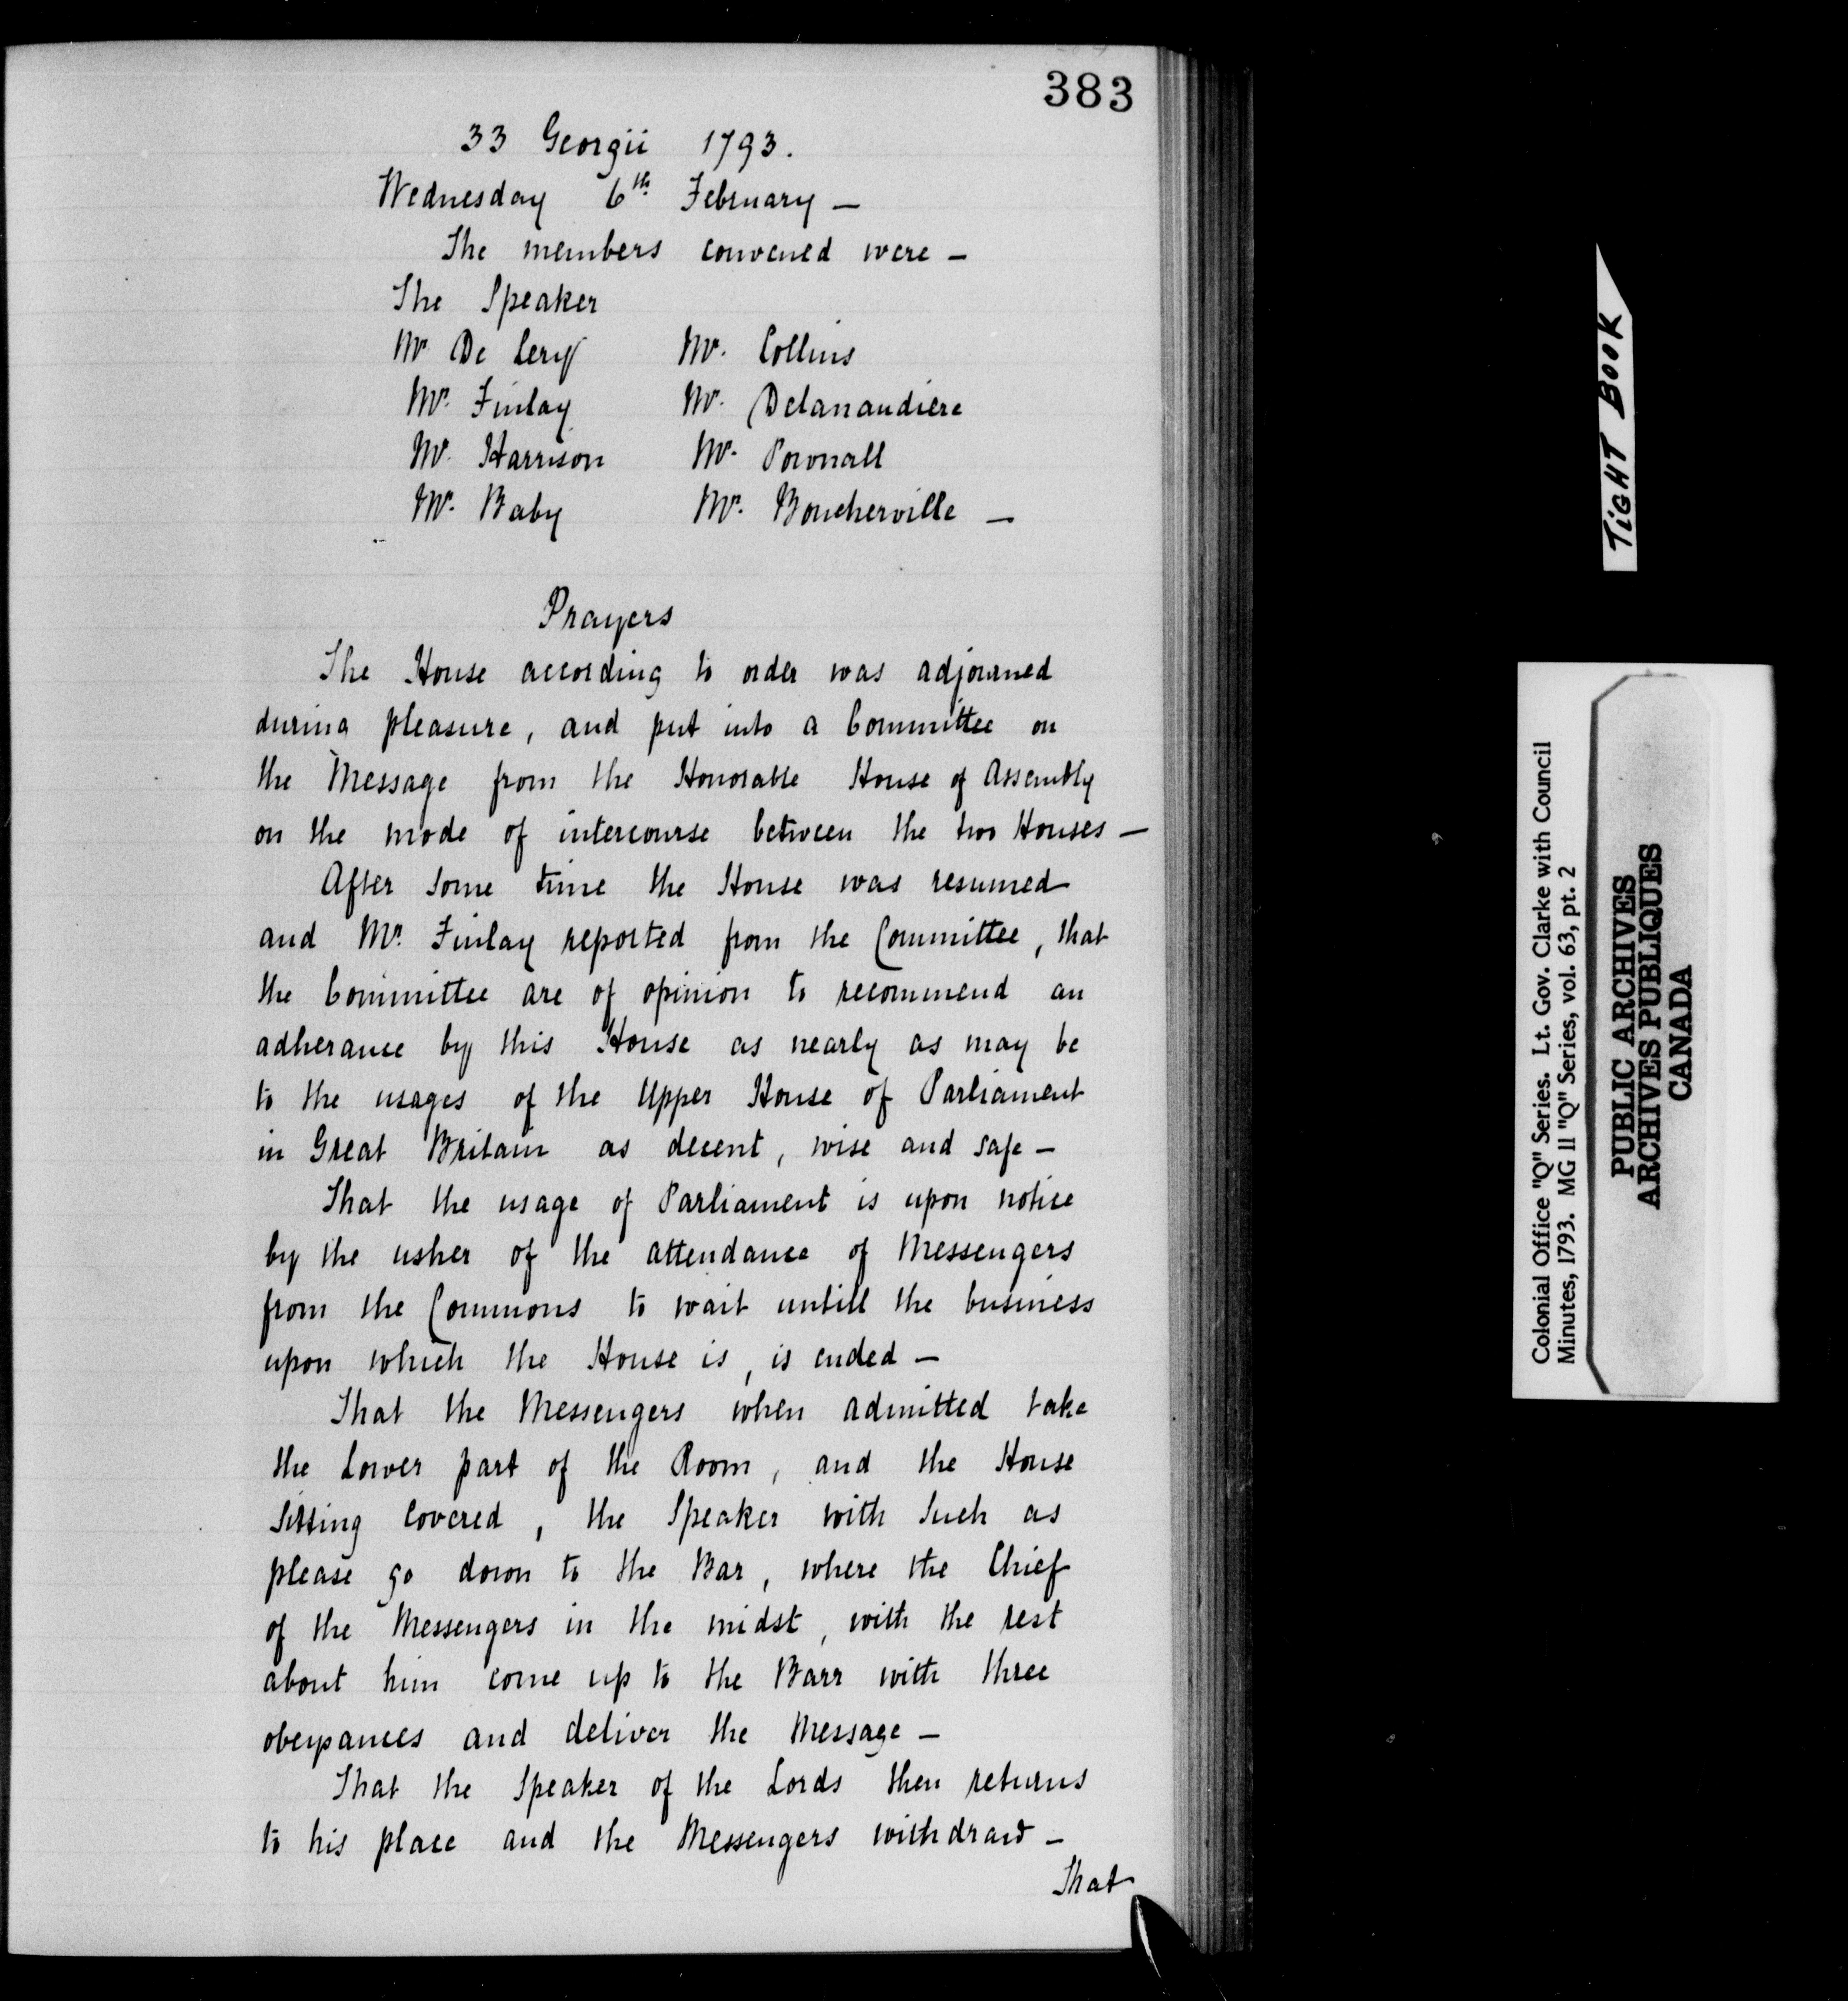 383
33 Georgii 1793.
Wednesday 6th February —
The members convened were —
The Speaker
Mr De Lery Mr. Collins
Mr. Finlay Mr. Delanaudiere
Mr. Harrison Mr. Pownall
Mr. Baby Mr. Boucherville —
Prayers
The House according to order was adjourned
during pleasure, and put into a Committee on
the Message from the Honorable House of Assembly
on the mode of intercourse between the two Houses —
After some time the House was resumed
and Mr. Finlay reported from the Committee, that
the Committee are of opinion to recommend an
adherance by this House as nearly as may be
to the usages of the Upper House of Parliament
in Great Britain as decent, wise and safe —
That the usage of Parliament is upon notice
by the usher of the attendance of Messengers
from the Commons to wait untill the business
upon which the House is, is ended —
That the Messengers when admitted take
the Lower part of the Room, and the House
sitting covered, the Speaker with such as
please go down to the Bar, where the Chief
of the Messengers in the midst, with the rest
about him come up to the Barr with three
obeysances and deliver the Message —
That the Speaker of the Lords then returns
to his place and the Messengers withdraw —
That
TIGHT BOOK
Colonial Office "Q" Series. Lt. Gov. Clarke with Council
Minutes, 1793. MG 11 "Q" Series, vol. 63, pt. 2
PUBLIC ARCHIVES
ARCHIVES PUBLIQUES
CANADA